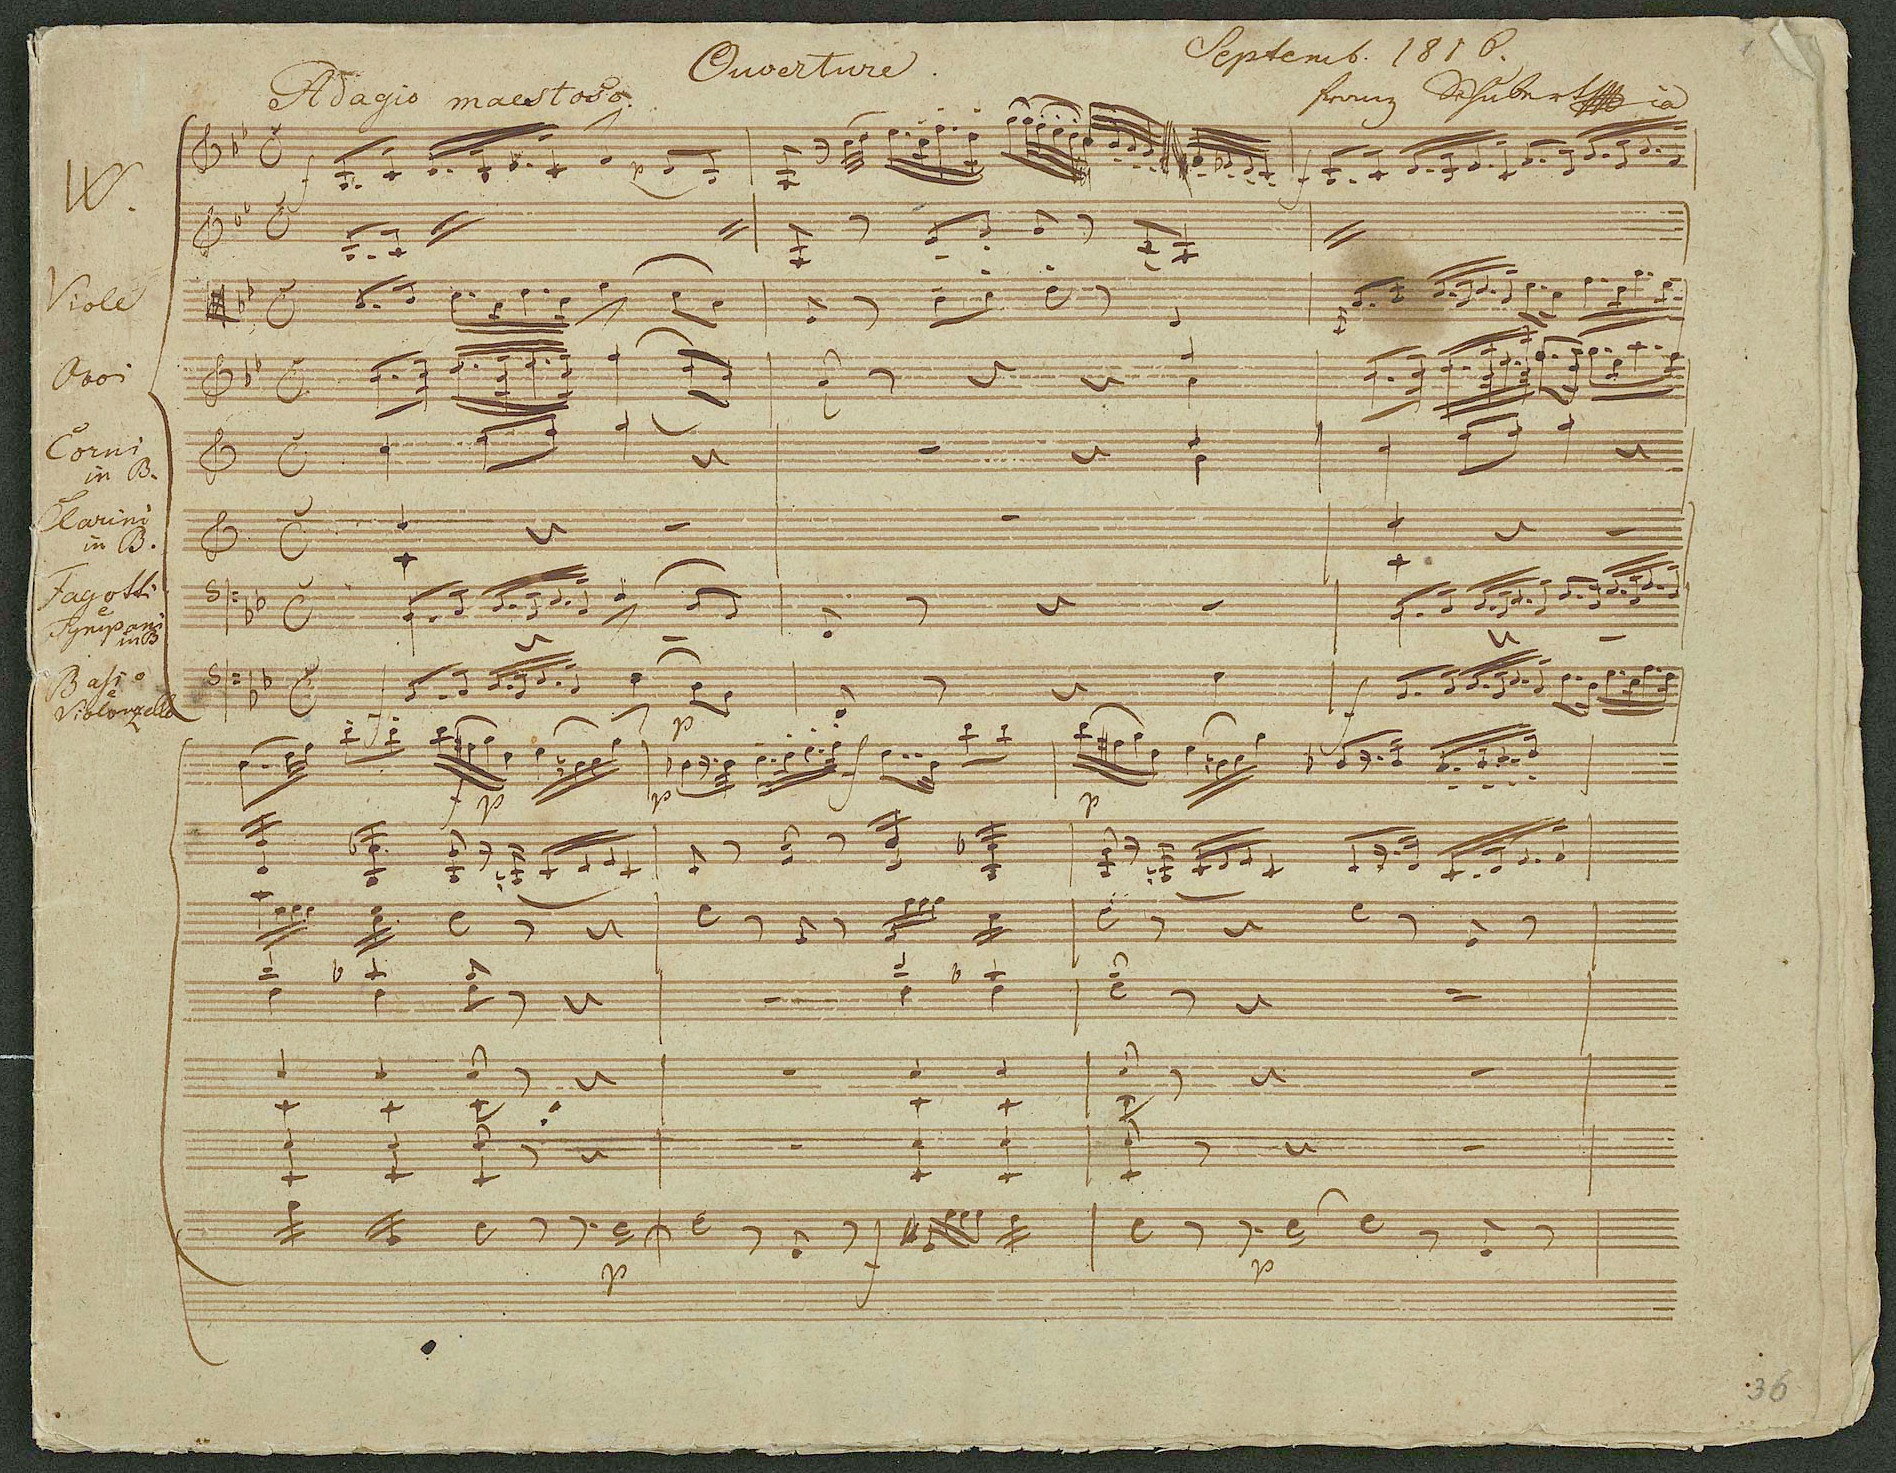 Ouverture.
Septemb. 1816.
Adagio maestoso.
Franz Schubert mpia
VV.
Viole
Oboi
Corni
in B.
Clarini
in B.
Fagotti
e
Tympani
in B
Bassi
e
Violonzello
f
p
f
f
f
p
f
p
p
f
p
p
f
p
36